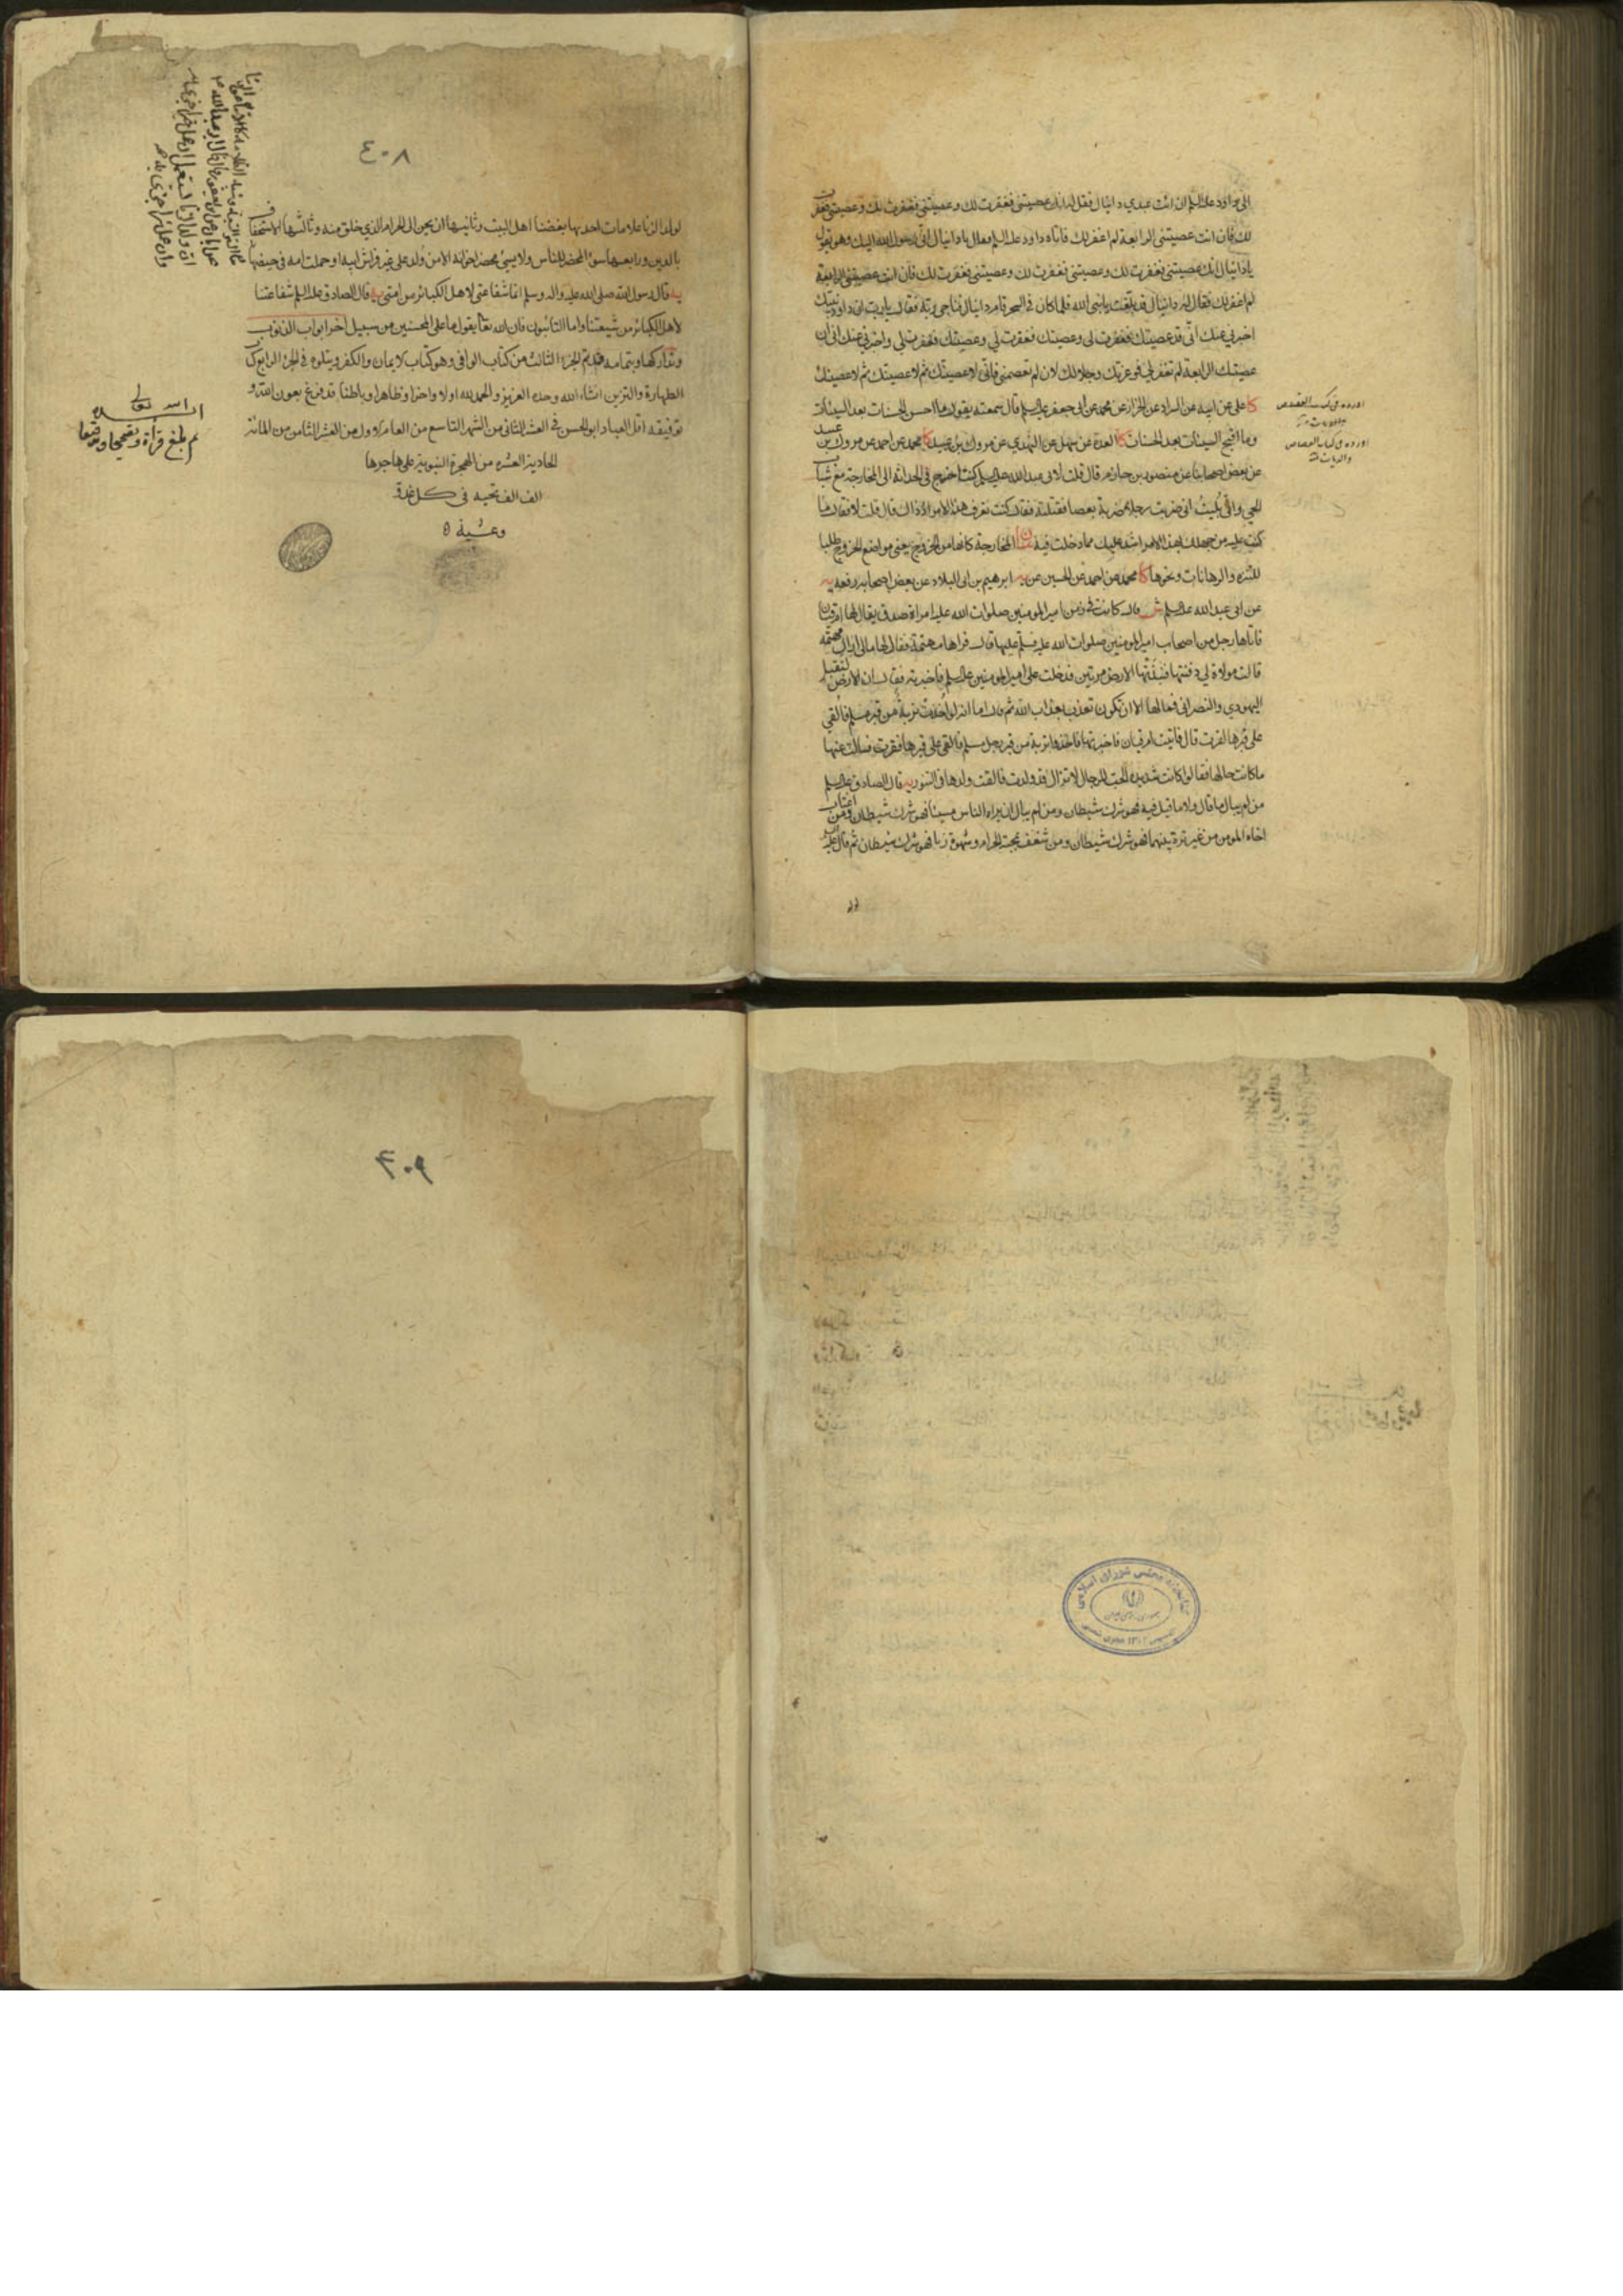 الى داود عليه السلم ان ائت عبدي دانيال فقل له انك عصيتني فغفرت لك وعصيتني فغفرت لك وعصيتني فغفرت
لك فان انت عصيتني الرابعة لم اغفر لك فاتاه داود عليه السلم فقال يا دانيال انى رسول الله اليك وهو يقول
يا دانيال انك عصيتني فغفرت لك وعصيتني فغفرت لك وعصيتني فغفرت لك فان انت عصيتني الرابعة
لم اغفر لك فقال له دانيال قد بلّغت يا نبي الله فلما كان في السحر قام دانيال فناجى ربّه فقال يا رب ان داود نبيك
اخبرني عنك انّى قد عصيتك فغفرت لى وعصيتك فغفرت لي وعصيتك فغفرت لي واخبرني عنك انى ان
عصيتك الرابعة لم تغفر لي فوعزتك وجلالك لان لم تعصمني فانّى لاعصيتك ثم لاعصيتك ثم لاعصيتك
كا على عن ابيه عن السراد عن الخزاز عن محمد عن ابي جعفر عليه السلم قال سمعته يقول ما احسن الحسنات بعد السيئات
وما اقبح السيئات بعد الحسنات كا العدة عن سهل عن النهدي عن مروك بن عبيد كا محمد عن احمد عن مروك بن عبيد
عن بعض اصحابنا عن منصور بن حازم قال قلت لابى عبد الله عليه السلم كنت اخرج في الحداثة الى المخارجة مع شباب
الحي واني بليت ان ضربت رجلا ضربة بعصا فقتلته فقال كنت تعرف هذا الامر اذ ذاك قال قلت لا فقال ما
كنت عليه من جهلك بهذا الامر اشد عليك مما دخلت فيه بيان المخارجة كانها من الخروج يعنى مواضع الخروج طلبا
للتنزه والرهانات ونحوها كا محمد عن احمد عن الحسين عن ابرهيم بن ابى البلاد عن بعض اصحابه رفعه يه
عن ابى عبد الله عليه السلم ش قال كانت في زمن امير المومنين صلوات الله عليه امراة صدق يقال لها ام قيان
فاتاها رجل من اصحاب امير المومنين صلوات الله عليه فسلم عليها قال فراها مهتمة فقال لها مالى اراك مهتمه
قالت مولاة لي دفنتها فنبذتها الارض مرتين فدخلت على امير المومنين عليه السلم فاخبرته فقال ان الارض لتقبل
اليهودي والنصرانى فما لها الا ان تكون تعذب بعذاب الله ثم قال اما انه لو اخذت تربة من قبر مسلم فالقي
على قبرها لقرت قال فاتيت ام قيان فاخبرتها فاخذوا تربة من قبر رجل مسلم فالقى على قبرها فقرت فسالت عنها
ما كانت حالها فقالوا كانت شديدة الحب للرجال لا تزال قد ولدت فالقت ولدها في التنور يه قال الصادق عليه السلم
من لم يبال ما قال ولا ما قيل فيه فهو شرك شيطان ومن لم يبال ان يراه الناس مسيئا فهو شرك شيطان ومن اغتاب
اخاه المومن من غير ترة بينهما فهو شرك شيطان ومن شغف بمحبة الحرام وشهوة زنا فهو شرك شيطان ثم قال عليه السلم
اورده فى كتاب القصاص
اورده فى كتاب القصاص
والديات منه
٤٠٨
لولد الزنا علامات احديها بغضنا اهل البيت وثانيها ان يحن الى الحرام الذي خلق منه وثالثها الاستخفاف
بالدين ورابعها سوء المحضر للناس ولا يسيئ محضر اخوانه الا من ولد على غير فراش ابيه او حملت امه في حيضها
يه قال رسول الله صلى الله عليه واله وسلم انما شفاعتى لاهل الكبائر من امتى يه قال الصادق عليه السلم شفاعتنا
لاهل الكبائر من شيعتنا واما التائبون فان الله تعا يقول ما على المحسنين من سبيل اخر ابواب الذنوب
وتداركها وبتمامه قد تم الجزء الثالث من كتاب الوافى وهو كتاب لايمان والكفر ويتلوه في الجزء الرابع كتاب
الطهارة والتزين انشاء الله وحده العزيز والحمد لله اولا واخرا وظاهرا وباطنا قد فرغ بعون الله و
توفيقه اقل العباد ابو الحسن في العشر الثانى من الشهر التاسع من العام الاول من العشر الثامن من المائة
الحادية العشره من الهجرة النبوية على هاجرها
الف الف تحيه فى كل غدوة
وعشية
الله تعالى
ثم بلغ قراة وتصحيحا وتوقيعا
٤٠٩
كتابخانه مجلس شوراى اسلامى